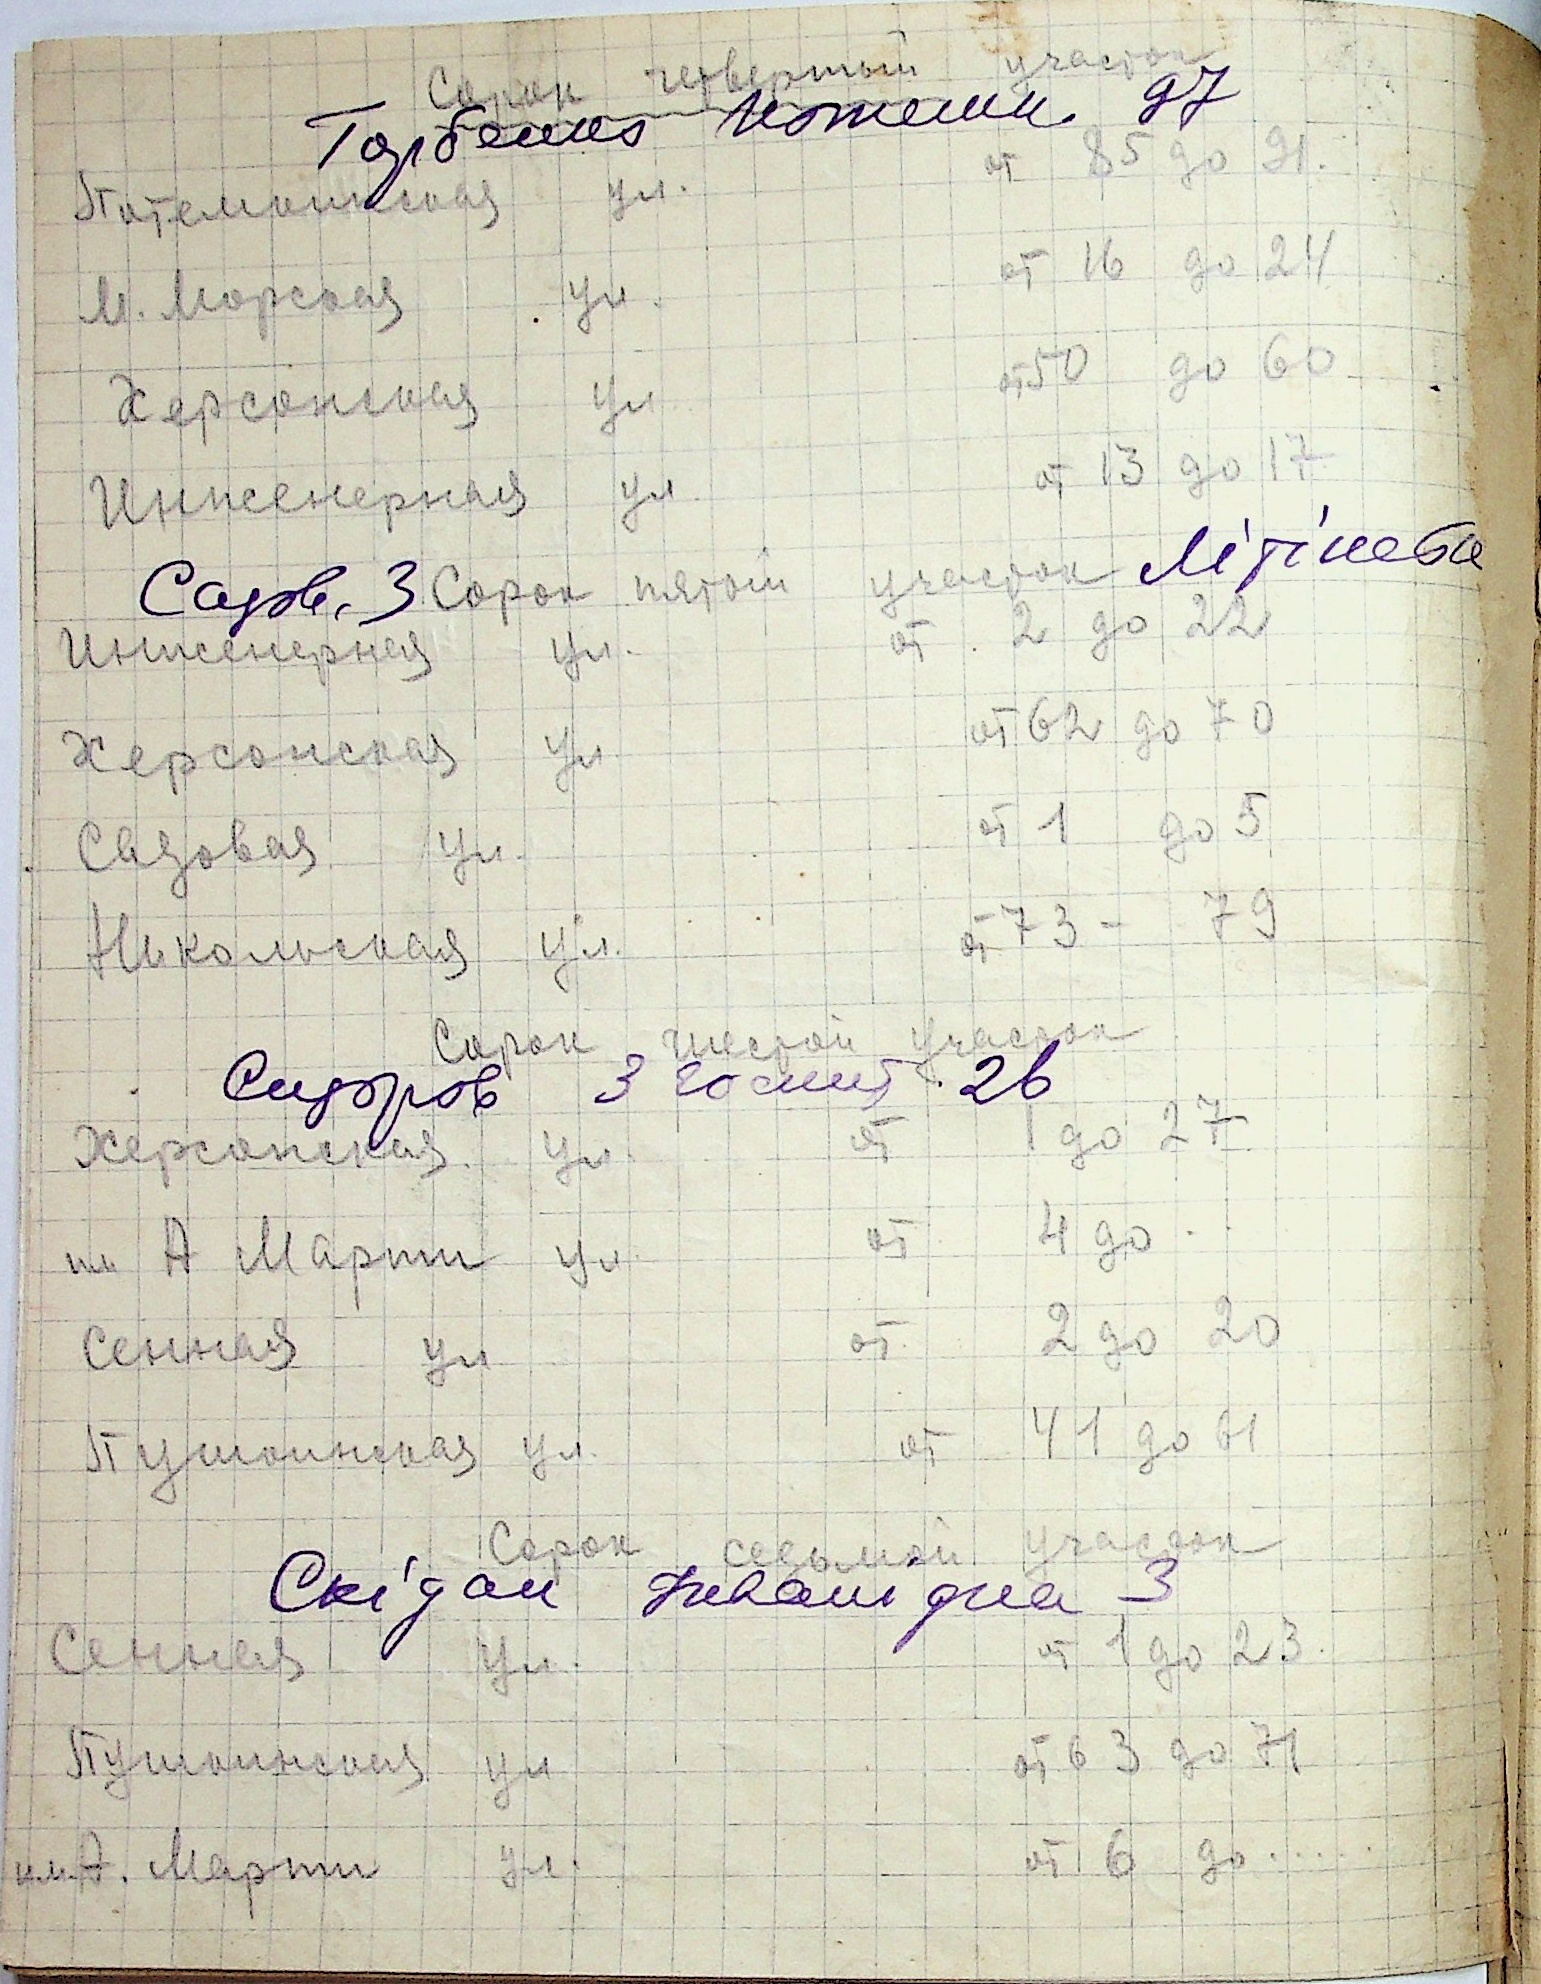 Сорок четвертый участок
Горбенко Потемк. 97
Потемкинская ул. от 85 до 91.
М. Морская ул. от 16 до 24
Херсонская ул от 50 до 60
Инженерная ул. от 13 до 17
Садов. 3 Сорок пятый участок Літінська
Инженерная ул. от 2 до 22
Херсонская ул. от 62 до 70
Садовая ул. от 1 до 5
Никольская ул. от 73 - 79
Сорок шестой участок
Сидоров 26
Херсонская ул. от 1 до 27
им А Марти ул. от 4 до ..
Сенная ул от 2 до 20
Пушкинская ул. от 41 до 61
Сорок седьмой участок
Скідан 3
Сенная ул. от 1 до 23.
Пушкинская ул от 63 до 71
им. А. Марти ул. от 6 до ......